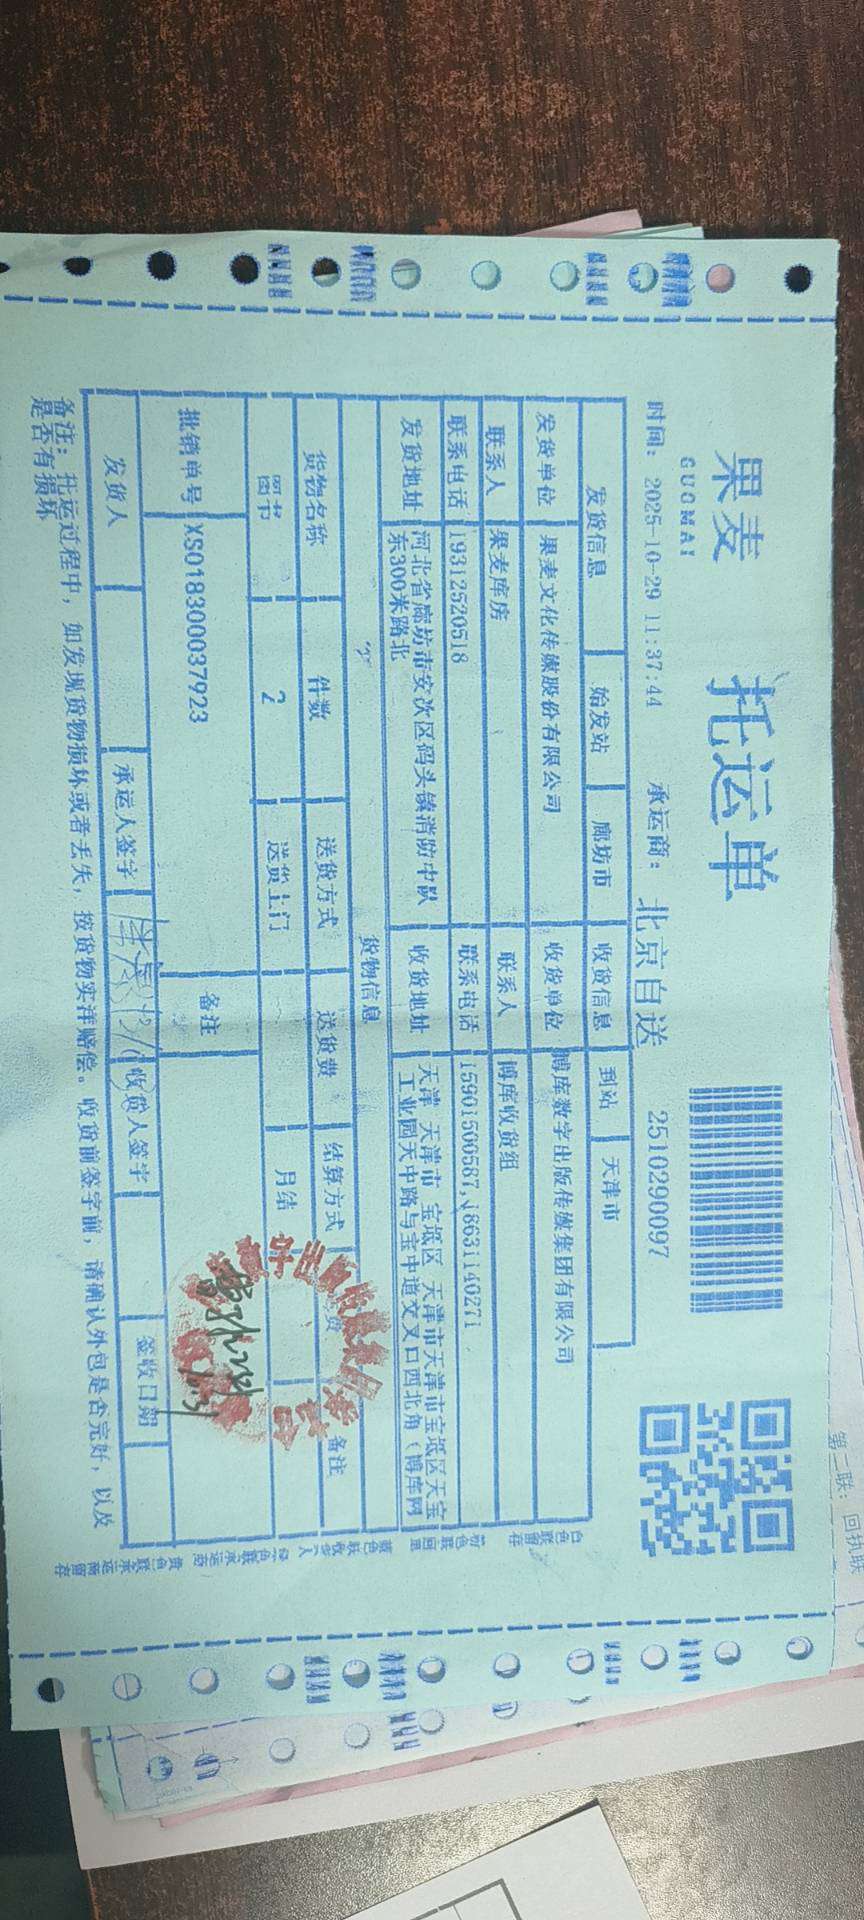 果麦
GUOMAI
托运单
时间: 2025-10-29 11:37:44 承运商: 北京自送 2510290097
发货信息 始发站 廊坊市 收货信息 到站 天津市
发货单位 果麦文化传媒股份有限公司 收货单位 博库数字出版传媒集团有限公司
联系人 果麦库房 联系人 博库收货组
联系电话 19312520518 联系电话 15901500587,18631140271
发货地址 河北省廊坊市安次区码头镇消防中队 收货地址 天津 天津市 宝坻区 天津市天津市宝坻区天宝
东300米路北 工业园天中路与宝中道交叉口西北角(博库网
货物信息
货物名称 件数 送货方式 送货费 结算方式 费 备注
图书 2 送货上门 月结
批销单号 XS018300037923 备注
发货人 承运人签字 收货人签字 签收日期
备注: 托运过程中, 如发现货物损坏或者丢失, 按货物实洋赔偿。收货前签字前, 请确认外包是否完好, 以及
是否有损坏
第二联: 回执联